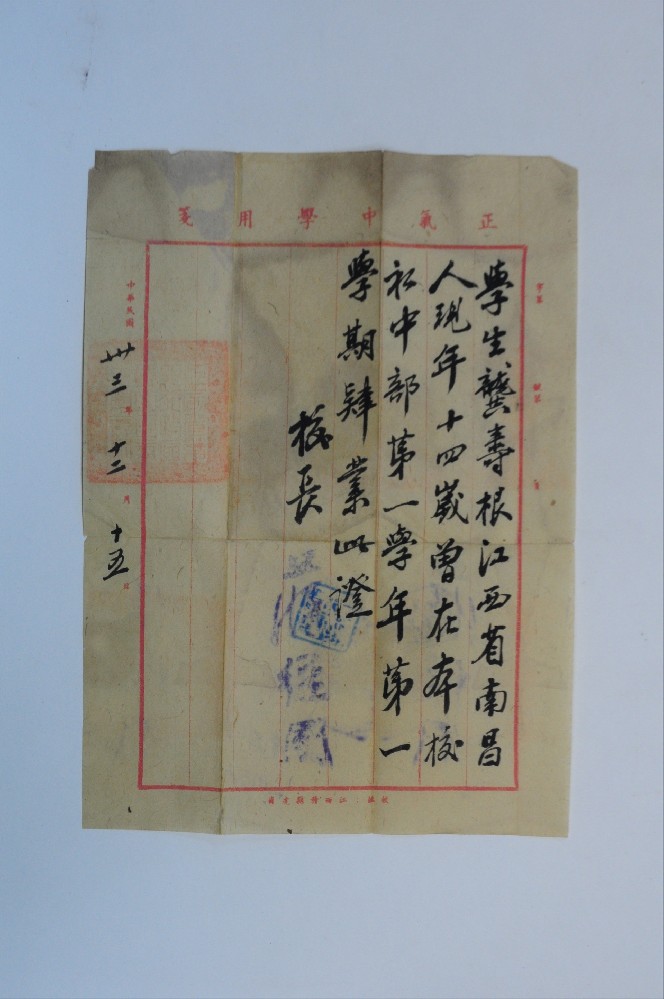 正氣中學用箋
學生龔壽根江西省南昌
人現年十四歲曾在本校
初中部第一學年第一
學期肄業此證
校長
中華民國卅三年十二月十五日